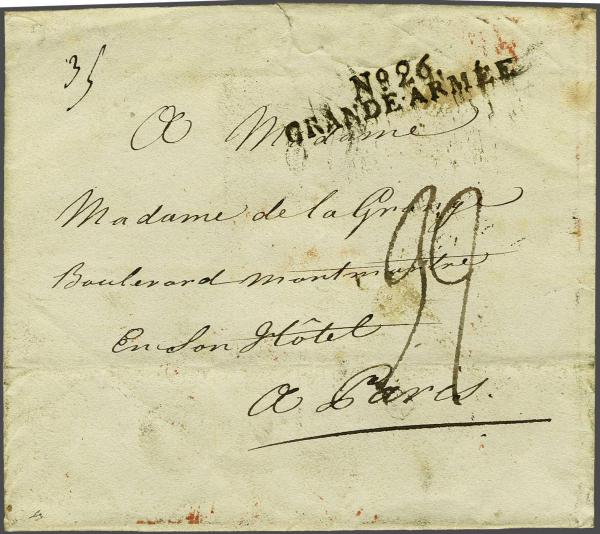 35
No 26.
GRANDE ARMÉE
A Madame
Madame de la Grange
Boulevard montmartre
En Son Hôtel
A Paris.
99